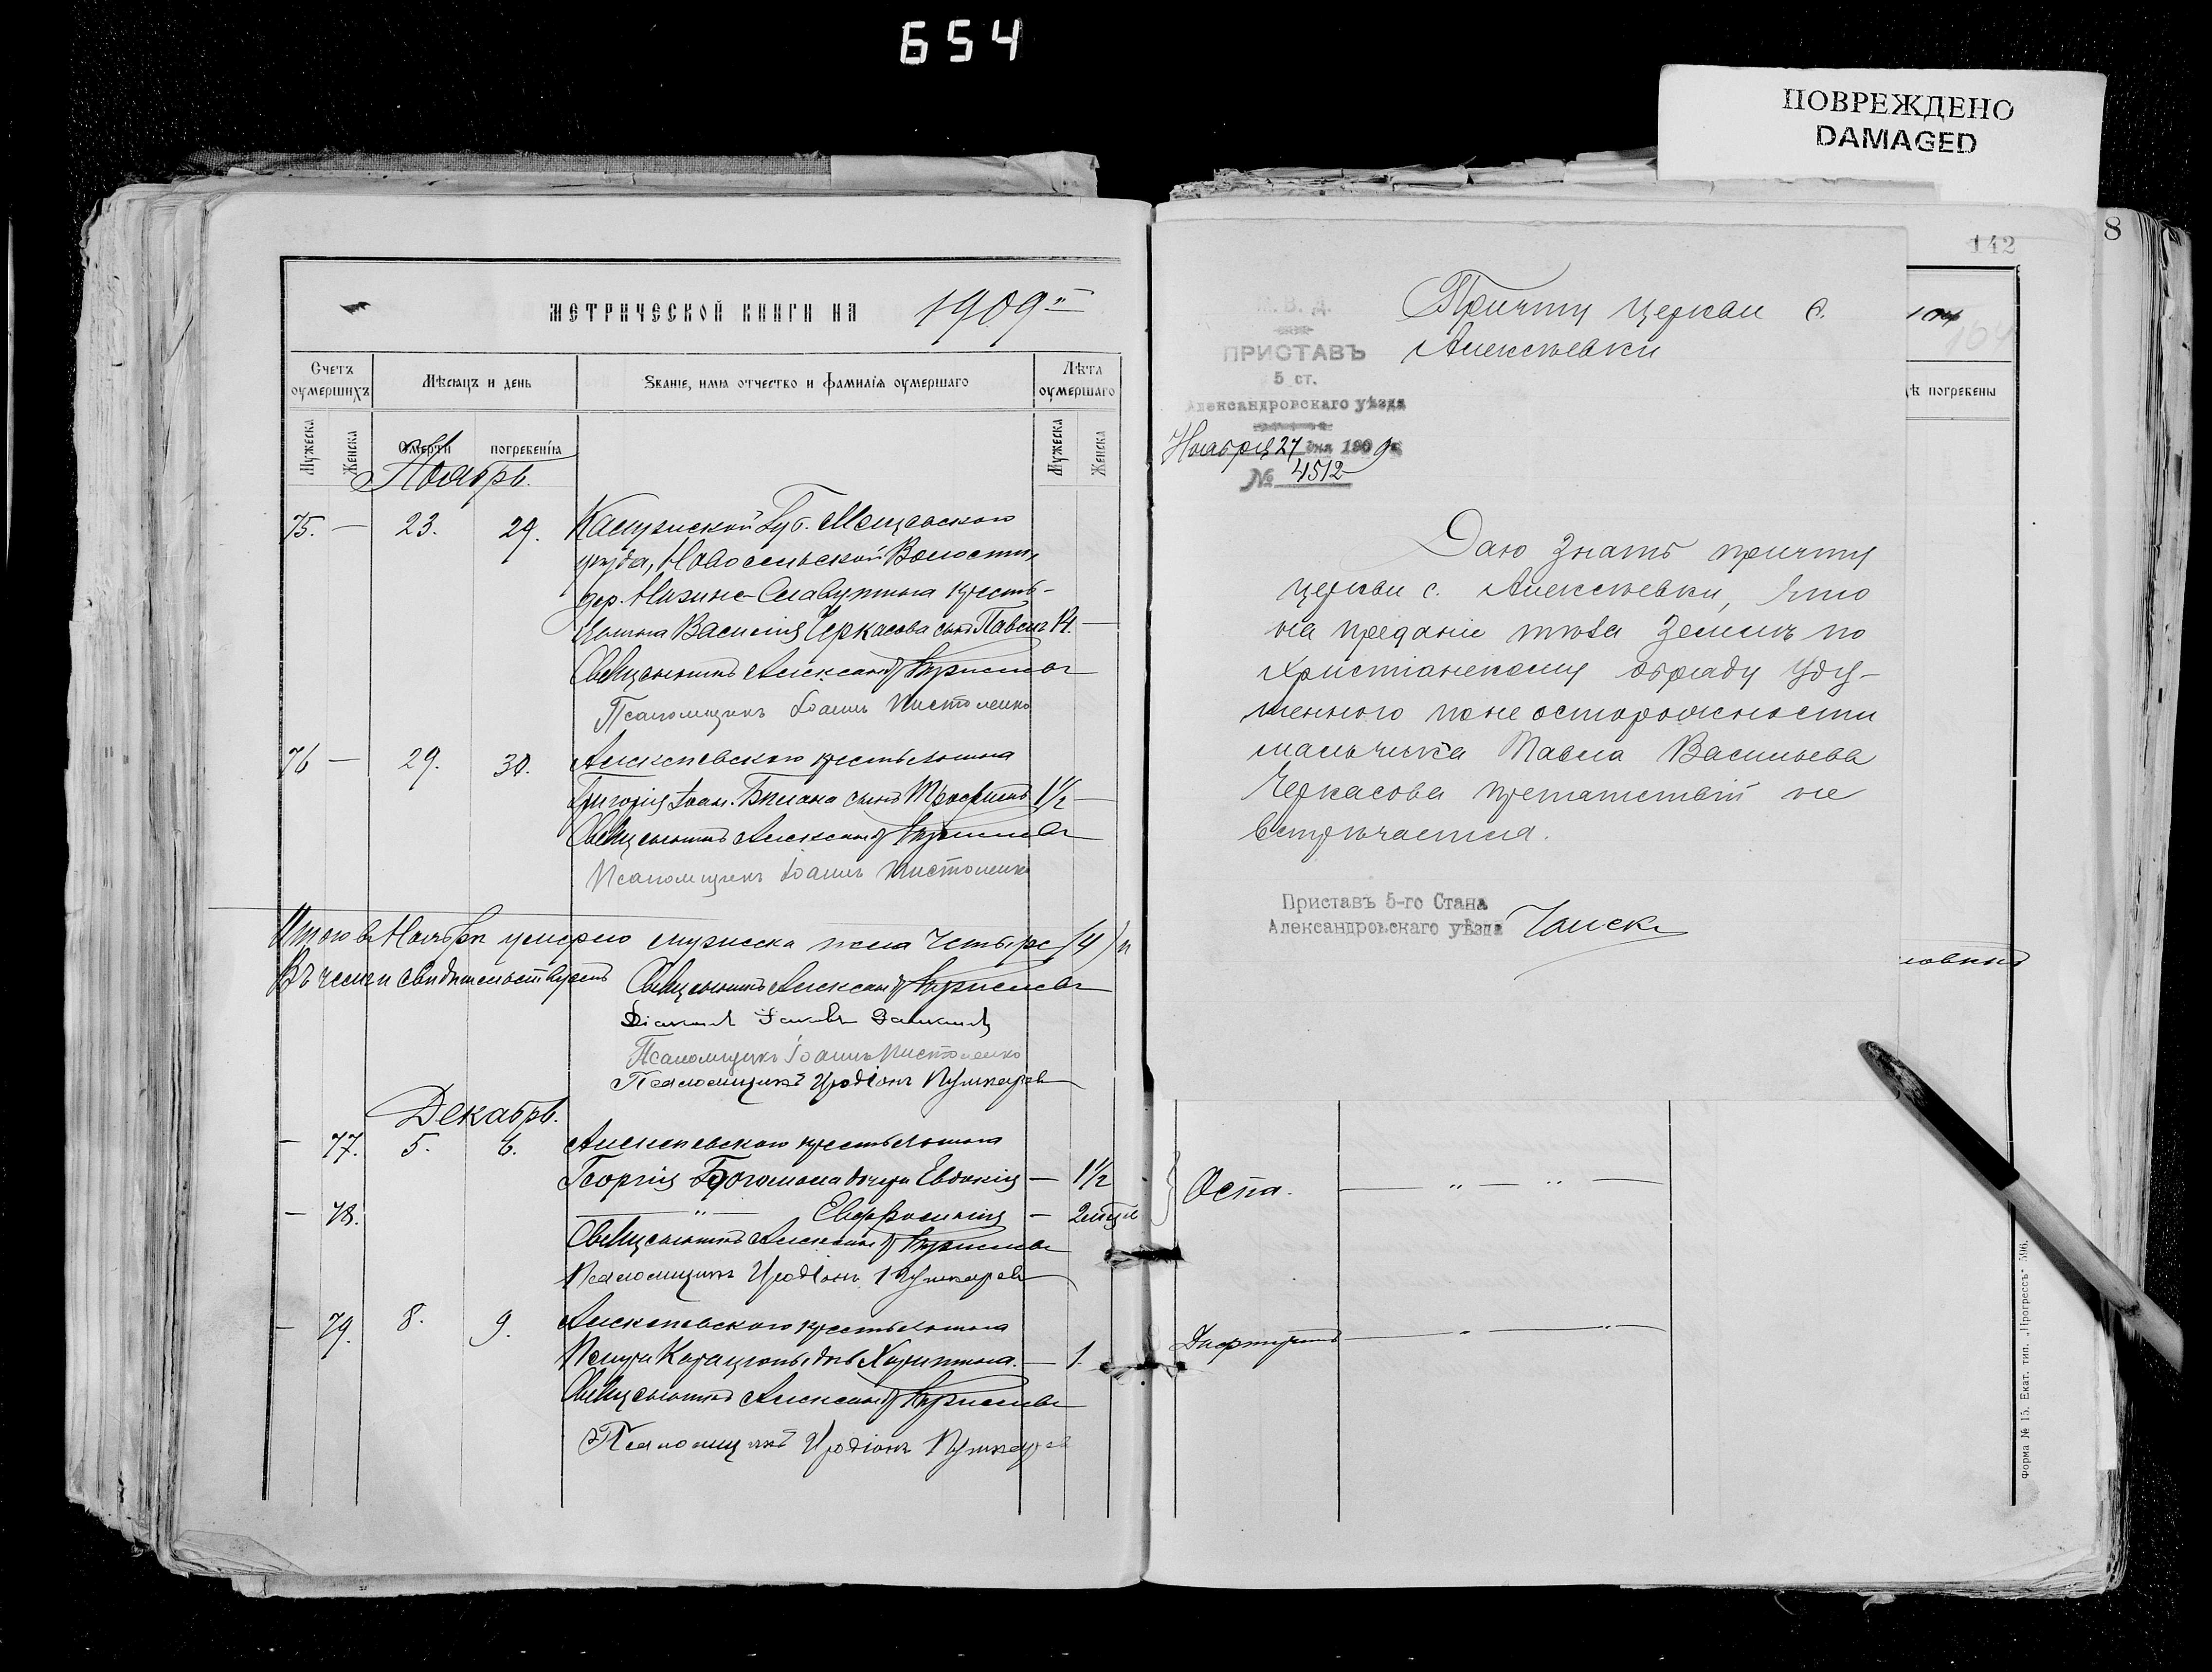 654
ПОВРЕЖДЕНО
DAMAGED
8
142
МЕТРИЧЕСКОЙ КНИГИ НА 1909
Счетъ оумершихъ
Мѣсяцъ и день
Званіе, имя отчество и фамилія оумершаго
Лѣта оумершаго
Мужеска
Женска
смерти
погребенія
Мужеска
Женска
Ноябрь.
75. — 23. 29. Калужской Губ. Мещовскаго
уѣзда, Новосельской Волости,
дер.
Василія Черкасова сынъ Павелъ —
Священникъ Александръ
Псаломщикъ Іоаннъ
76 — 29. 30. Алексѣевскаго крестьянина
Григорія Іоан. сынъ Трофимъ 1½ —
Священникъ Александръ
Псаломщикъ Іоаннъ
Итого въ Ноябрѣ умерло мужеска пола Четыре (4)
Въ чемъ и свидѣтельствуемъ Священникъ Александръ
Діаконъ
Псаломщикъ Іоаннъ
Псаломщикъ Иродіонъ Пушкаревъ
Декабрь.
— 77. 5. 6. Алексѣевскаго крестьянина
Георгія дочери Евдокія — 1½
— 78. — " — Евфросинія —
Священникъ Александръ
Псаломщикъ Иродіонъ Пушкаревъ
— 79. 8. 9. Алексѣевскаго крестьянина
дочь Харитина. — 1.
Священникъ Александръ
Псаломщикъ Иродіонъ Пушкаревъ
М. В. Д.
ПРИСТАВЪ
5 ст.
Александровскаго уѣзда
Ноября 27 дня 1909 г.
№ 4512
Причту церкви с.
Алексѣевки
Даю знать причту
церкви с. Алексѣевки, что
на преданіе тѣла землѣ по
христіанскому обряду уду-
шеннаго по неосторожности
мальчика Павла Васильева
Черкасова препятствій не
встрѣчается.
Приставъ 5-го Стана
Александровскаго уѣзда
ѣ погребены
Оспа. — " — " —
— " — " —
Форма № 15. Екат. тип. „Прогрессъ" 596.